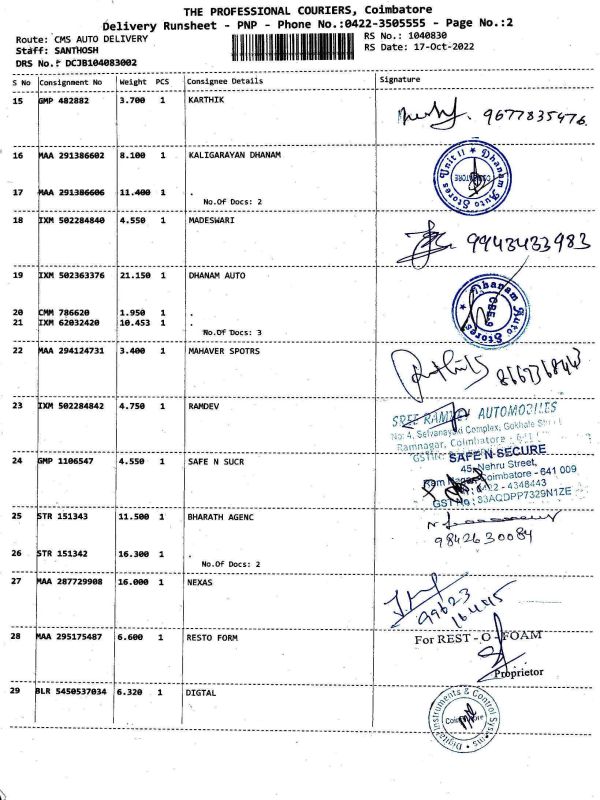 THE PROFESSIONAL COURIERS, Coimbatore
Delivery Runsheet - PNP - Phone No.:0422-3505555 - Page No.:2
Route: CMS AUTO DELIVERY RS No.: 1040830
Staff: SANTHOSH RS Date: 17-Oct-2022
DRS No.: DCJB104083002
S No Consignment No Weight PCS Consignee Details Signature
15 GMP 482882 3.700 1 KARTHIK
9677835476
16 MAA 291386602 8.100 1 KALIGARAYAN DHANAM
Dhanam Auto Stores Unit II
17 MAA 291386606 11.400 1 .
No.Of Docs: 2
18 IXM 502284840 4.550 1 MADESWARI
9943433983
19 IXM 502363376 21.150 1 DHANAM AUTO
Dhanam Auto Stores CBE-9
20 CMM 786620 1.950 1 .
21 IXM 62032420 10.453 1 .
No.Of Docs: 3
22 MAA 294124731 3.400 1 MAHAVER SPOTRS
23 IXM 502284842 4.750 1 RAMDEV
SREE RAMDEV AUTOMOBILES
No: 4, Selvanayaki Complex, Gokhale Street
Ramnagar, Coimbatore
GSTIN:
24 GMP 1106547 4.550 1 SAFE N SUCR
SAFE N SECURE
45, Nehru Street,
Ram Nagar, Coimbatore - 641 009
0422 - 4348443
GST No : 33AQDPP7329N1ZE
25 STR 151343 11.500 1 BHARATH AGENC
9842630084
26 STR 151342 16.300 1 .
No.Of Docs: 2
27 MAA 287729908 16.000 1 NEXAS
99623
16445
28 MAA 295175487 6.600 1 RESTO FORM
For REST - O - FOAM
Proprietor
29 BLR 5450537034 6.320 1 DIGTAL
Digital Instruments & Control Systems
Coimbatore